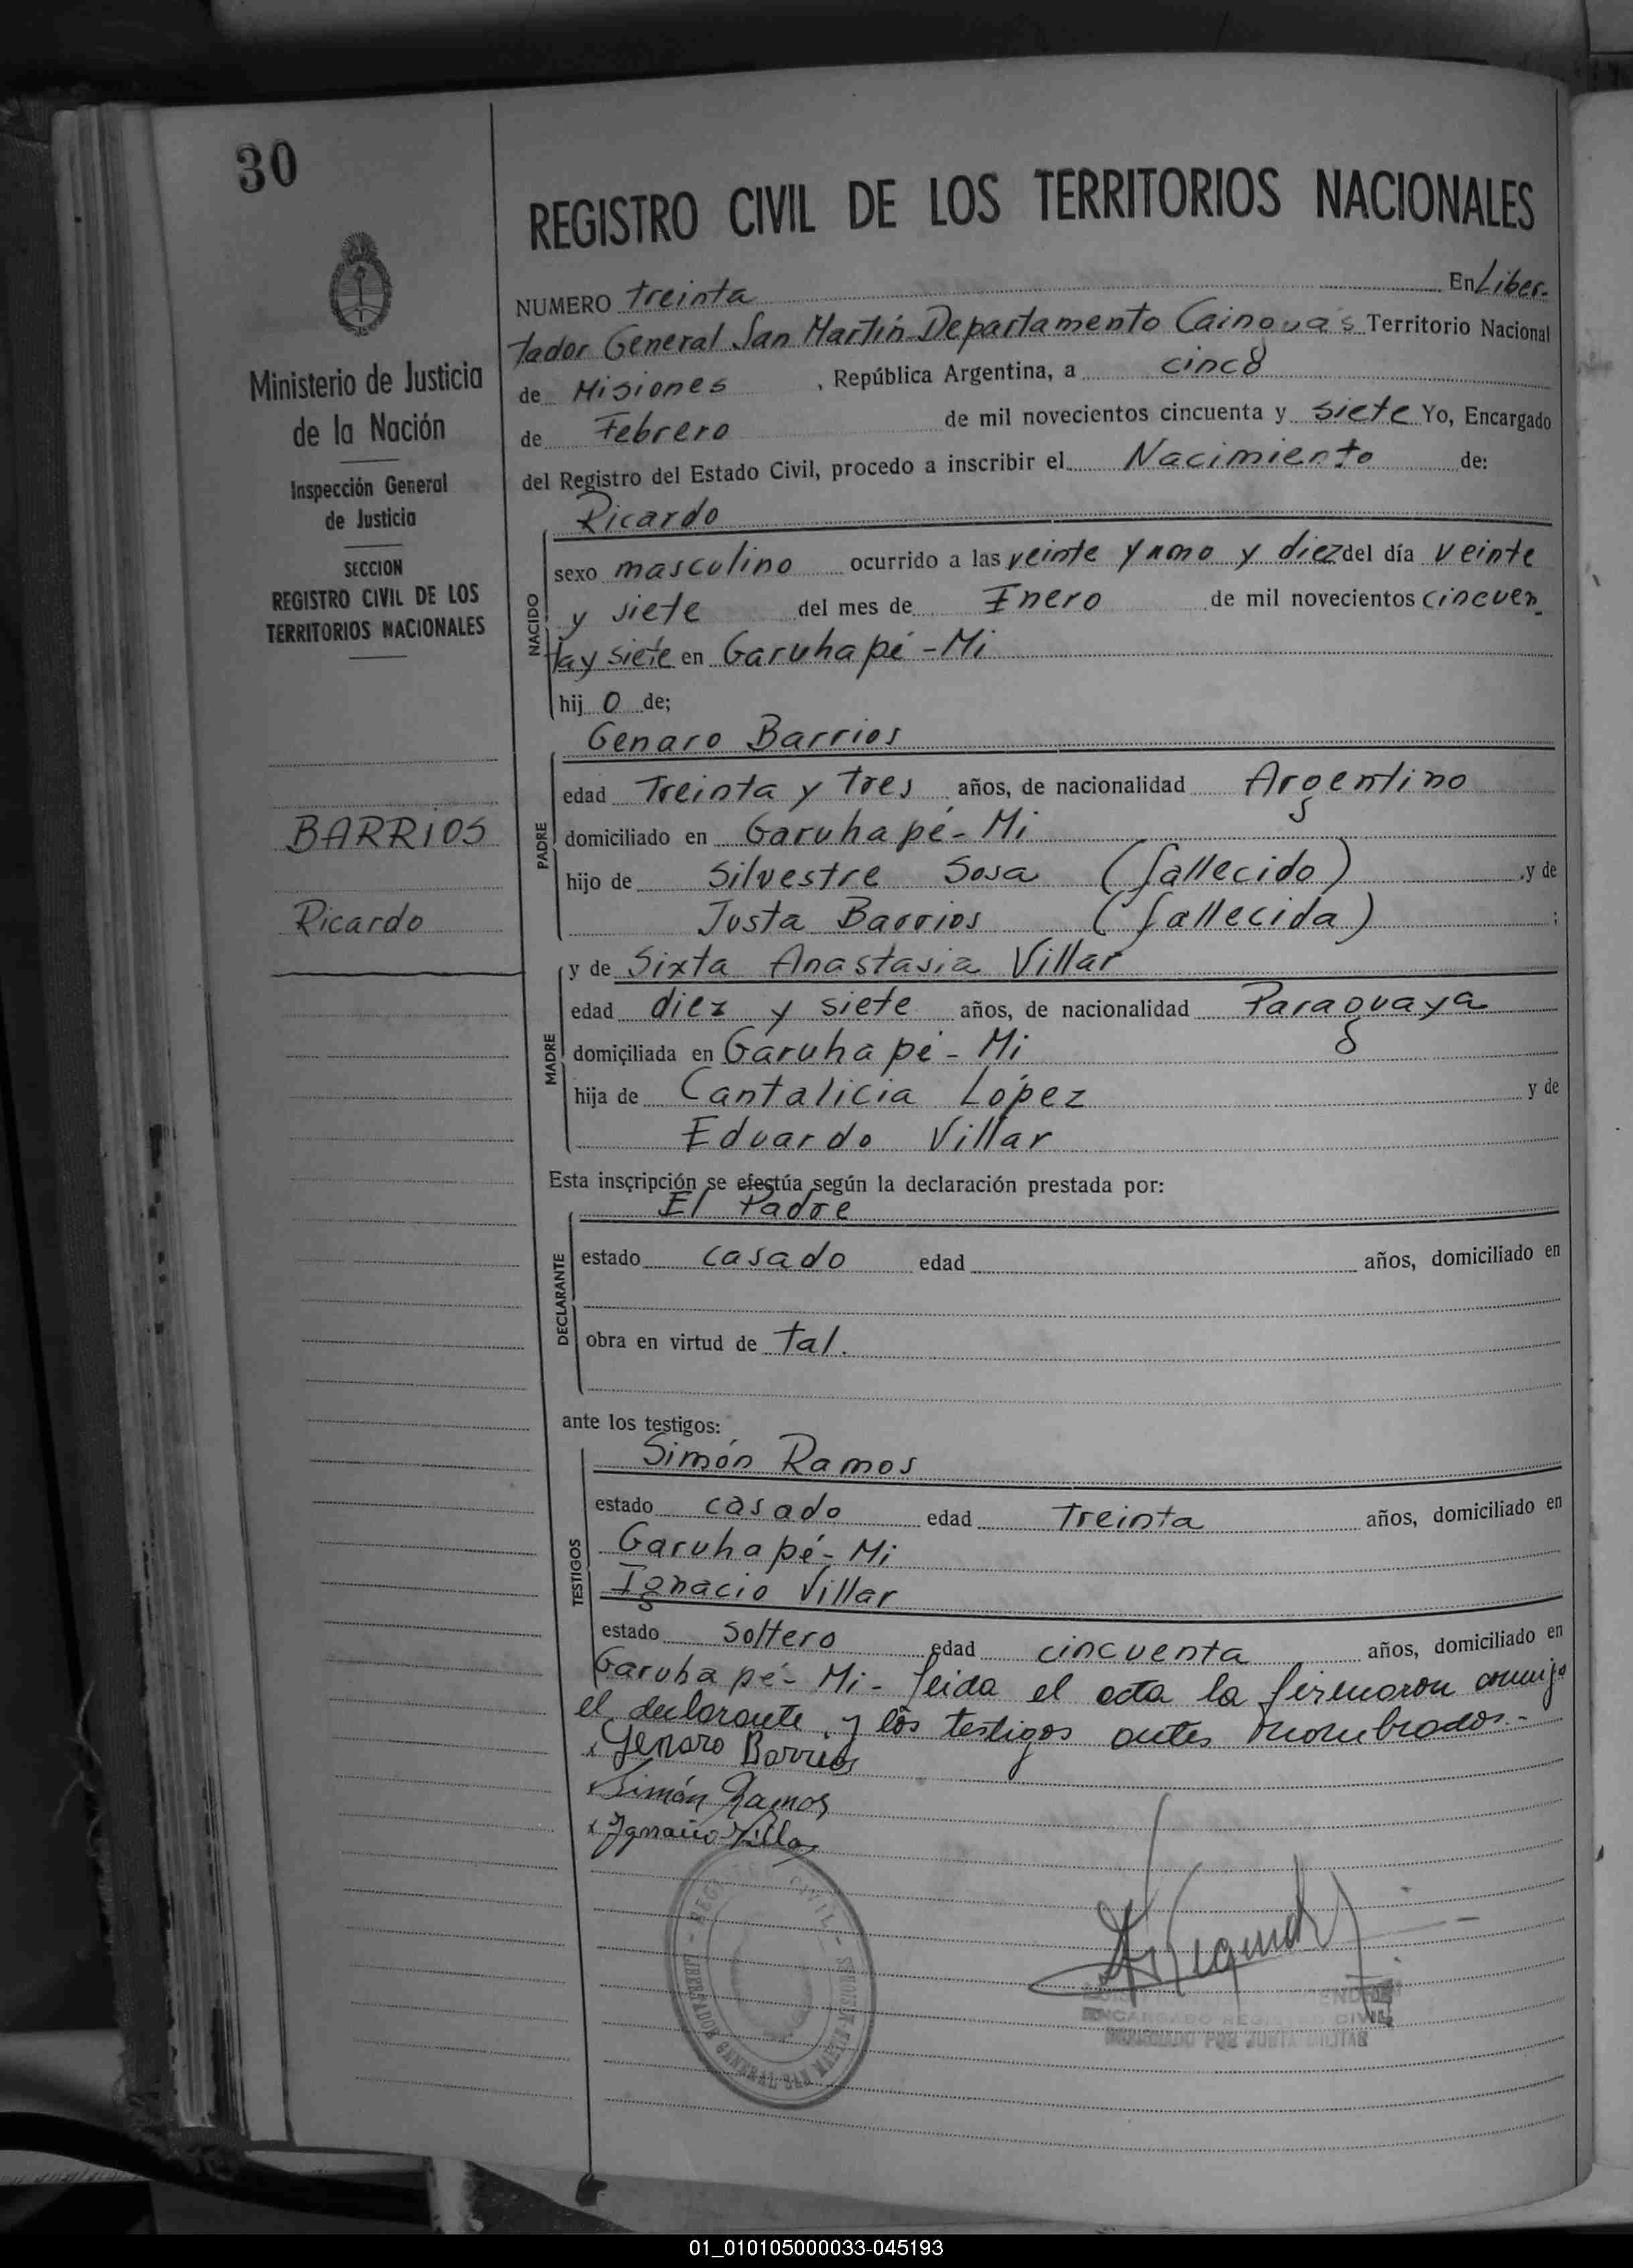 30
REGISTRO CIVIL DE LOS TERRITORIOS NACIONALES
Ministerio de Justicia
de la Nación
Inspección General
de Justicia
SECCION
REGISTRO CIVIL DE LOS
TERRITORIOS NACIONALES
BARRIOS
Ricardo
NUMERO treinta En Liber-
tador General San Martín Departamento Cainguas Territorio Nacional
de Misiones , República Argentina, a cinco
de Febrero de mil novecientos cincuenta y siete Yo, Encargado
del Registro del Estado Civil, procedo a inscribir el Nacimiento de:
Ricardo
NACIDO
sexo masculino ocurrido a las veinte y uno y diez del día veinte
y siete del mes de Enero de mil novecientos cincuen
ta y siete en Garuhapé-Mi
hij o de;
Genaro Barrios
PADRE
edad Treinta y Tres años, de nacionalidad Argentino
domiciliado en Garuhapé-Mi
hijo de Silvestre Sosa (fallecido) y de
Justa Barrios (fallecida) ;
MADRE
y de Sixta Anastasia Villar
edad diez y siete años, de nacionalidad Paraguaya
domiciliada en Garuhapé-Mi
hija de Cantalicia López y de
Eduardo Villar
Esta inscripción se efectúa según la declaración prestada por:
El Padre
DECLARANTE
estado casado edad años, domiciliado en
obra en virtud de tal.
ante los testigos:
Simón Ramos
TESTIGOS
estado casado edad Treinta años, domiciliado en
Garuhapé-Mi
Ignacio Villar
estado soltero edad cincuenta años, domiciliado en
Garuhapé-Mi- leida el acta la firmaron conmigo
el declarante y los testigos antes nombrados.-
x Genaro Barrios
x Simón Ramos
x Ignacio Villar
REGISTRO CIVIL - LIBERTADOR GENERAL SAN MARTIN MISIONES
ENCARGADO REGISTRO CIVIL
POR JUNTA MILITAR
01_010105000033-045193